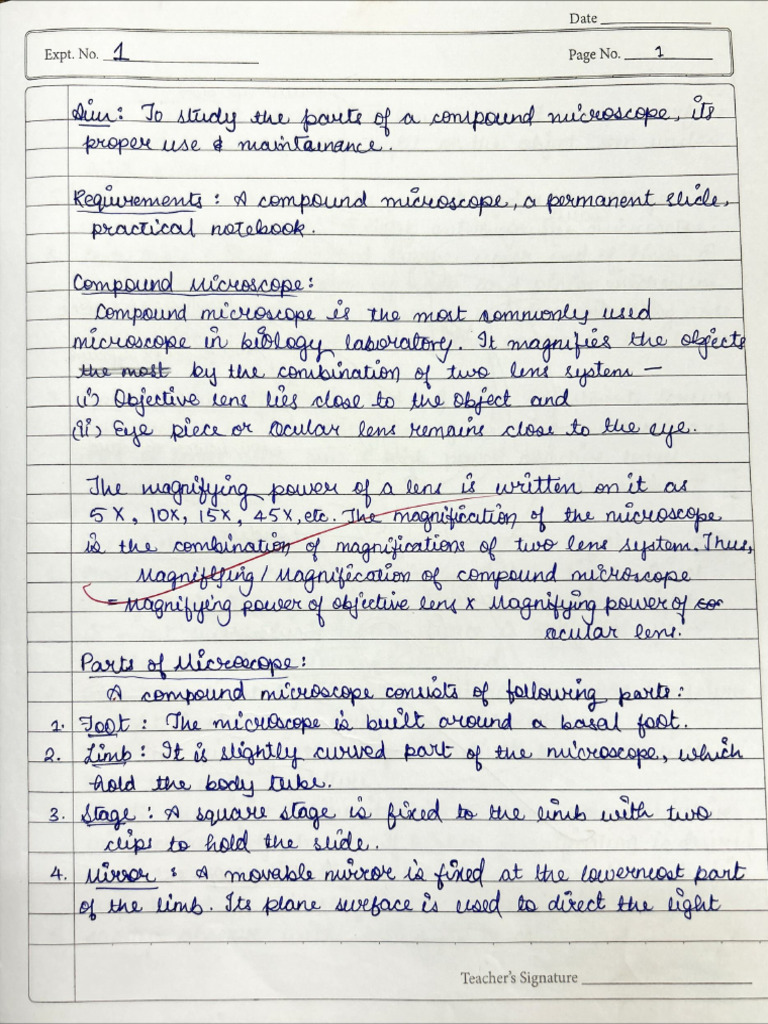 Date
Expt. No. 1
Page No. 1
Aim: To study the parts of a compound microscope, its
proper use & maintainance.
Requirements: A compound microscope, a permanent slide,
practical notebook.
Compound Microscope:
Compound microscope is the most commonly used
microscope in biology laboratory. It magnifies the objects
the most by the combination of two lens system —
(i) Objective lens lies close to the object and
(ii) Eye piece or Ocular lens remains close to the eye.
The magnifying power of a lens is written on it as
5X, 10X, 15X, 45X, etc. The magnification of the microscope
is the combination of magnifications of two lens system. Thus,
Magnifying / Magnification of compound microscope
= Magnifying power of objective lens x Magnifying power of
ocular lens.
Parts of Microscope:
A compound microscope consists of following parts:
1. Foot: The microscope is built around a basal foot.
2. Limb: It is slightly curved part of the microscope, which
hold the body tube.
3. Stage: A square stage is fixed to the limb with two
clips to hold the slide.
4. Mirror: A movable mirror is fixed at the lowermost part
of the limb. Its plane surface is used to direct the light
Teacher's Signature